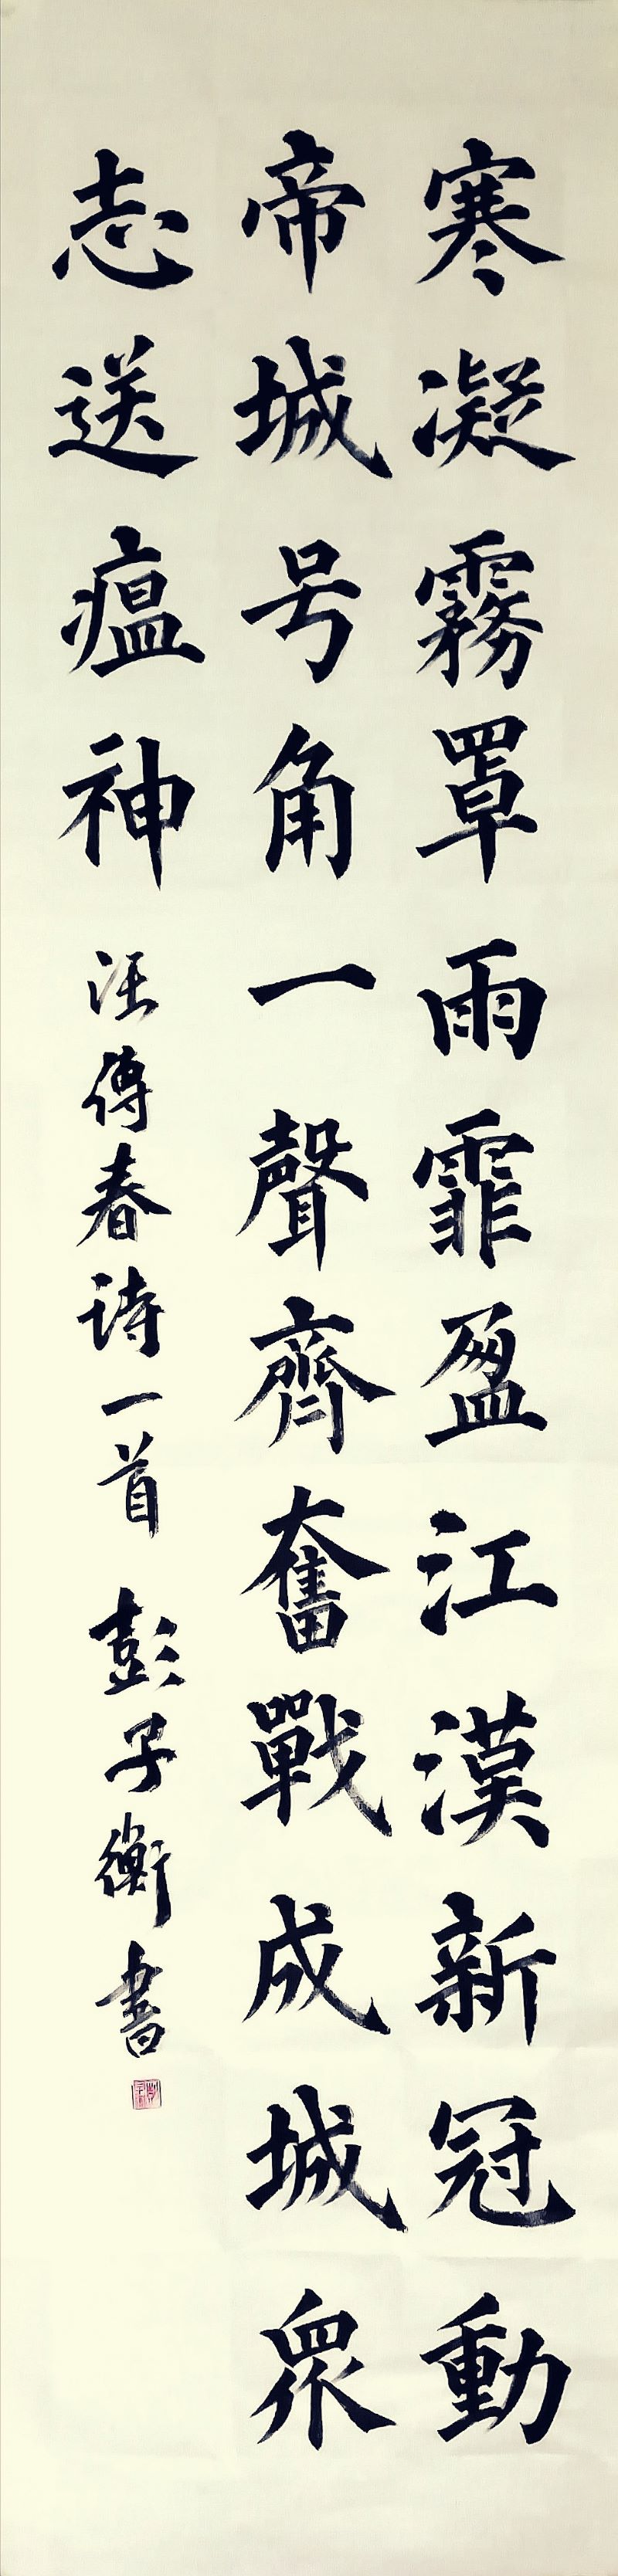 寒凝霧罩雨霏盈江漢新冠動
帝城号角一聲齊奮戰成城衆
志送瘟神
汪傳春诗一首 彭子衡書